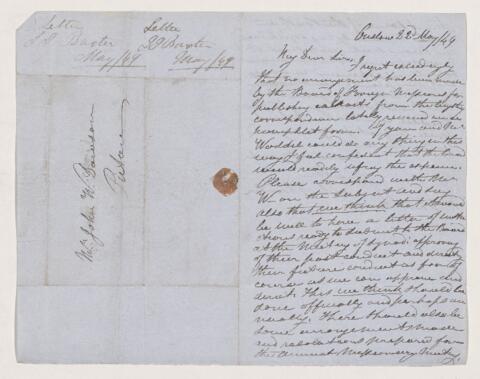 Letter
J J Baxter
May/49
Letter
JJ Baxter
May/49
Mr John W. Dawson
Pictou
Onslow 22d May/49
My Dear Sir,
I regret exceedingly
that no arrangement has been made
by the Board of Foreign Missions for
publishing extracts from the
correspondence lately received in a
pamphlet form. If you and Mr
Waddel could do any thing in this
way I feel confident that the Board
would readily defray the expense.
Please correspond with Mr
W. on the subject and say
also that we think that it would
be well to have a letter of instructions
ready to submit to the Board
at the Meeting of Synod approving
of their past conduct and directing
their future conduct as far of
course as we can approve and
direct. This we think should be
done officially and perhaps annually.
There should also be
some arrangement made
and resolutions prepared for
the annual Missionary Meeting.